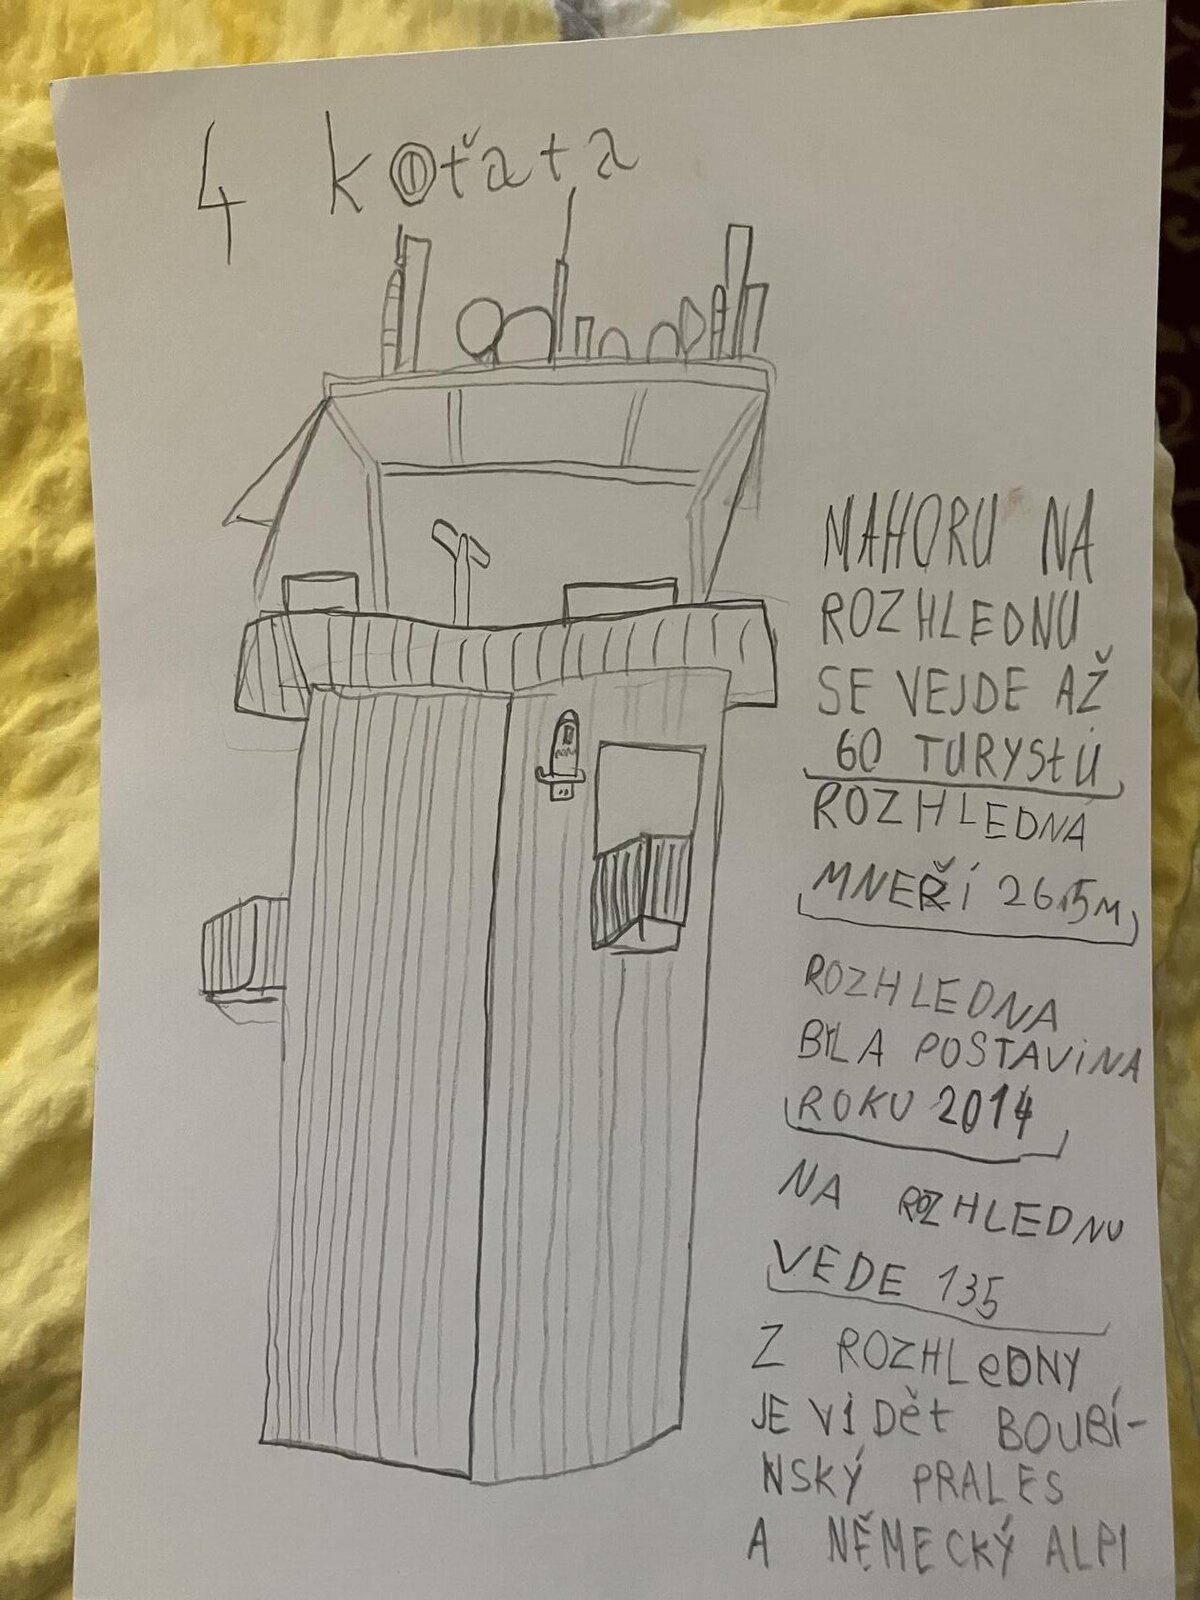 4 koťata
MAHORU NA
ROZHLEDNU
SE VEJDE AŽ
60 TURYStŮ
ROZHLEDNA
MNEŘÍ 26.5M
ROZHLEDNA
BYLA POSTAViNA
ROKU 2014
NA ROZHLEDNU
VEDE 135
Z ROZHLeDNY
JE ViDět BOUBÍ-
NSKÝ PRALES
A NĚMECKÝ ALPI